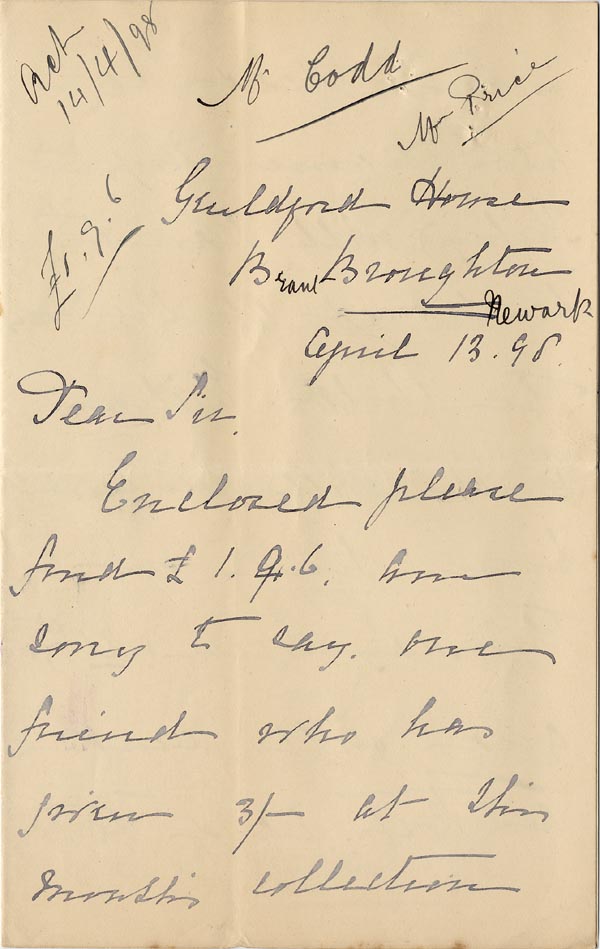 Act
14/4/98
Mr Codd
Mr Price
£1.9.6
Guildford House
Brant Broughton
Newark
April 13.98.
Dear Sir,
Enclosed please
find £1.9.6. am
sorry to say. one
friend who has
given 3/- at this
months collection